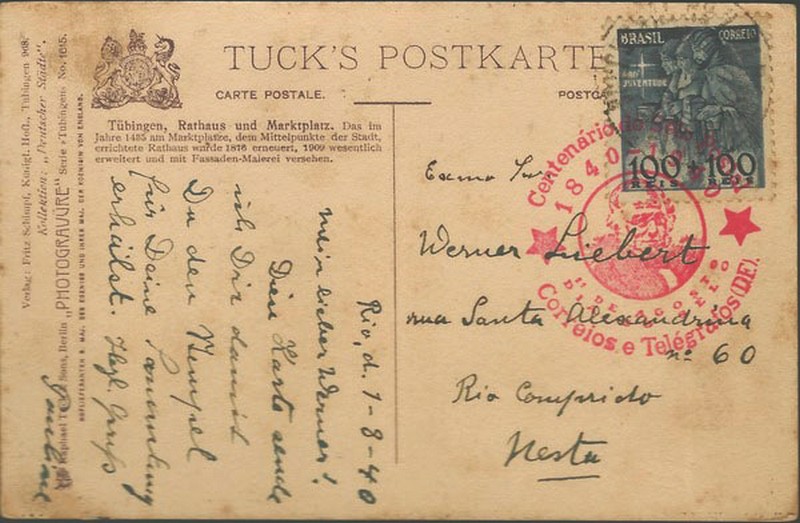 TUCK'S POSTKARTE
CARTE POSTALE.
POSTCA
Tübingen, Rathaus und Marktplatz. Das im
Jahre 1435 am Marktplatze, dem Mittelpunkte der Stadt,
errichtete Rathaus wurde 1876 erneuert, 1909 wesentlich
erweitert und mit Fassaden-Malerei versehen.
Verlag: Fritz Schimpf, Königl. Hofl., Tübingen 908.
Kollektion: „Deutscher Städte".
„PHOTOGRAVURE" Serie »Tübingen« No. 1615.
Raphael T Sons, Berlin
HOFLIEFERANTEN S. MAJ. DES KOENIGS UND IHRER MAJ. DER KOENIGIN VON ENGLAND.
Rio, d. 1-8-40
Mein lieber Werner!
Diese Karte sende
ich Dir damit
Du den Stempel
für Deine Sammlung
erhälst. Hzl. Gruß
BRASIL CORREIO
JUVENTUDE
100 + 100
REIS REIS
Centenário do Selo
1840-1940
1º DE AGOSTO
DIA DO SELO
Correios e Telégrafos (DF).
Exmo Snr.
Werner Liebert
rua Santa Alexandrina
nº 60
Rio Comprido
Nesta